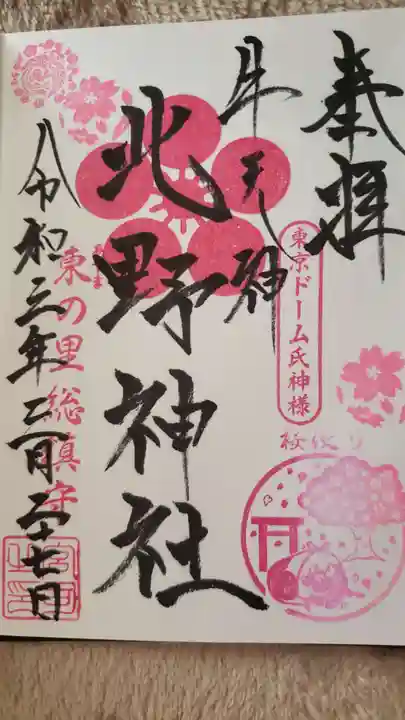 奉拝
牛天神
東京ドーム氏神様
桜便り
北野神社
東の里総鎮守
令和三年三月二十七日